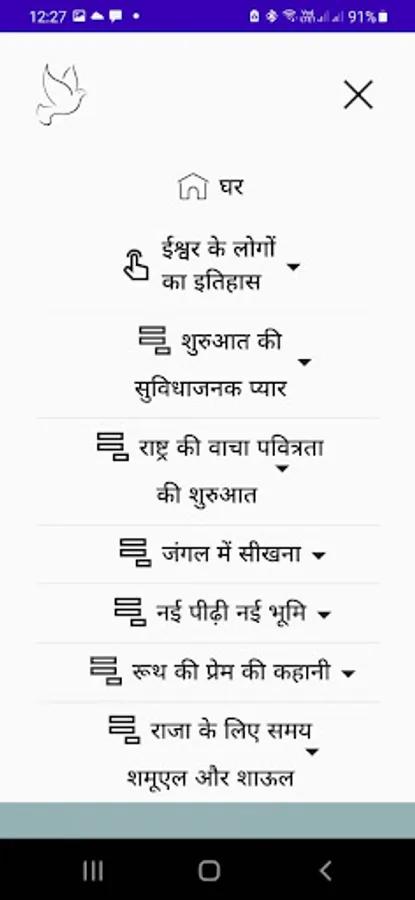 12:27
91%
घर
ईश्वर के लोगों
का इतिहास
शुरुआत की
सुविधाजनक प्यार
राष्ट्र की वाचा पवित्रता
की शुरुआत
जंगल में सीखना
नई पीढ़ी नई भूमि
रूथ की प्रेम की कहानी
राजा के लिए समय
शमूएल और शाऊल